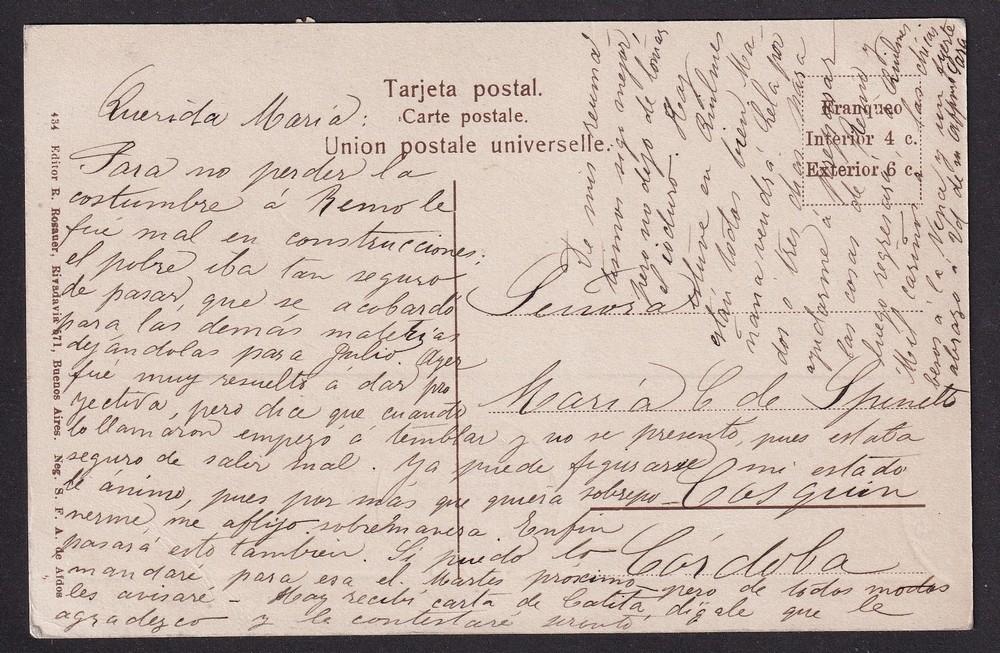 Tarjeta postal.
Carte postale.
Union postale universelle.
Franqueo
Interior 4 c.
Exterior 6 c.
434 Editor R. Rosauer, Rivadavia 571, Buenos Aires. Neg. S. F. A. de Afdos
Querida María:
Para no perder la
costumbre á Remo le
fué mal en construcciones;
el pobre iba tan seguro
de pasar, que se acobardó
para las demás materias
dejándolas para Julio. Ayer
fué muy resuelto á dar pro-
yectiva, pero dice que cuando
lo llamaron empezó á temblar y no se presentó, pues estaba
seguro de salir mal. Ya puede figurarse mi estado
de ánimo, pues por más que quiera sobrepo-
nerme, me aflijo sobremanera. Enfin
pasará esto tambien. Si puedo lo
mandaré para esa el Martes próximo, pero de todos modos
les avisaré - Hoy recibí carta de Catita, dígale que le
agradezco y le contestaré pronto
Señora
María C de Spinetto
Cosquín
Córdoba
De mis reuma
tismos sigo mejor
pero no dejo de tomar
el ioduro.
estuve en Quilmes
están todos bien. Ma-
ñana vendrá Lela por
dos o tres dias para
ayudarme á
las cosas de
luego regresará á Quilmes.
Mil cariños á las chicas
besos á la Nena y un fuerte
abrazo á Vd de su Sara